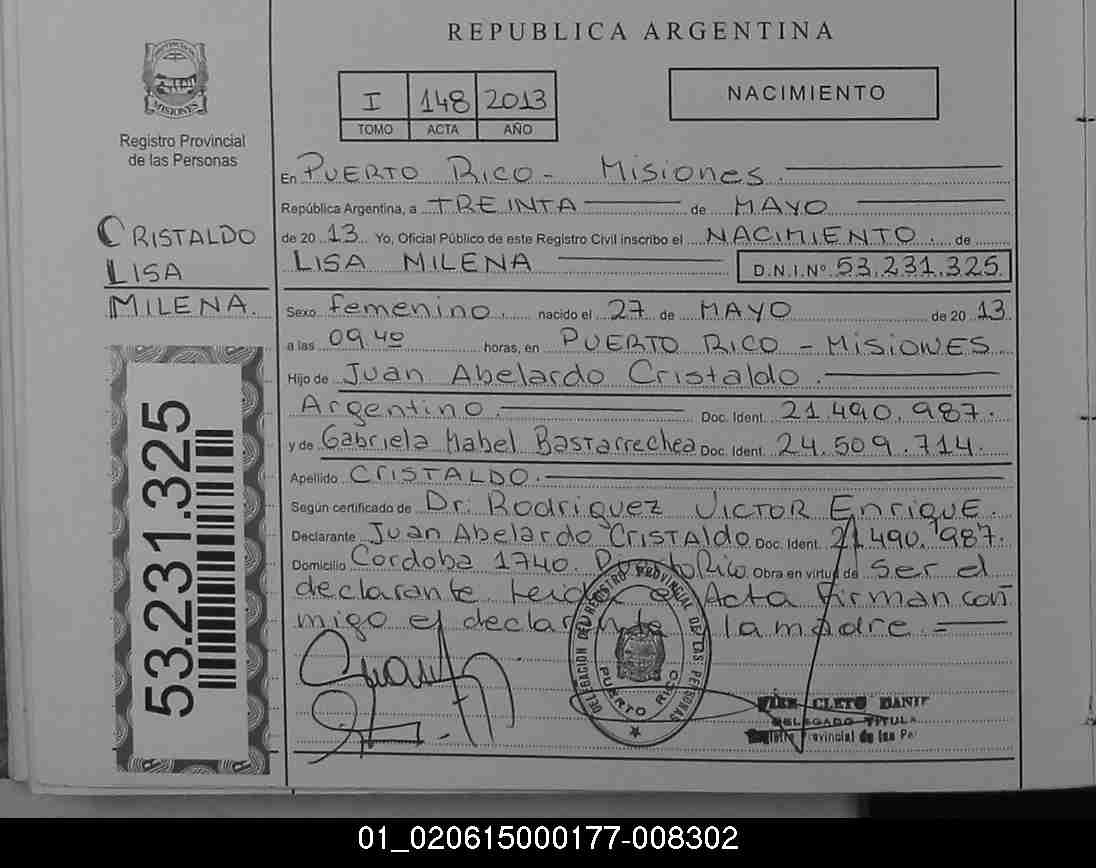 REPUBLICA ARGENTINA
MISIONES
Registro Provincial
de las Personas
I 148 2013
TOMO ACTA AÑO
NACIMIENTO
CRISTALDO
LISA
MILENA.
53.231.325
En PUERTO RICO - Misiones.
República Argentina, a TREINTA de MAYO
de 20 13 Yo, Oficial Público de este Registro Civil inscribo el NACIMIENTO. de
LISA MILENA D.N.I.Nº 53.231.325.
Sexo femenino. nacido el 27 de MAYO de 20 13.
a las 09 40 horas, en PUERTO RICO - MISIONES
Hijo de Juan Abelardo Cristaldo.
Argentino. Doc. Ident. 21.490.987.
y de Gabriela Mabel Bastarrechea Doc. Ident. 24.509.714.
Apellido CRISTALDO.
Según certificado de Dr. Rodriguez VICTOR Enrique.
Declarante Juan Abelardo CRISTAldo. Doc. Ident. 21.490.987.
Domicilio Cordoba 1740. Rico. Obra en virtud de ser el
declarante Acta firman con
migo el la madre.
DELEGACION DEL REGISTRO PROVINCIAL DE LAS PERSONAS
PUERTO RICO
CLETO
DELEGADO TITULA
Provincial de las Pe
01_020615000177-008302